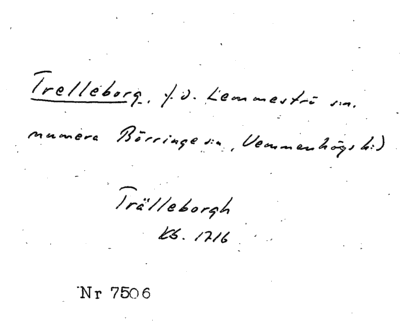 Trelleborg, f.d. Lemmeströ sn.
numera Börringe sn, Vemmenhögs hd
Trälleborgh
Kb. 1716
Nr 7506